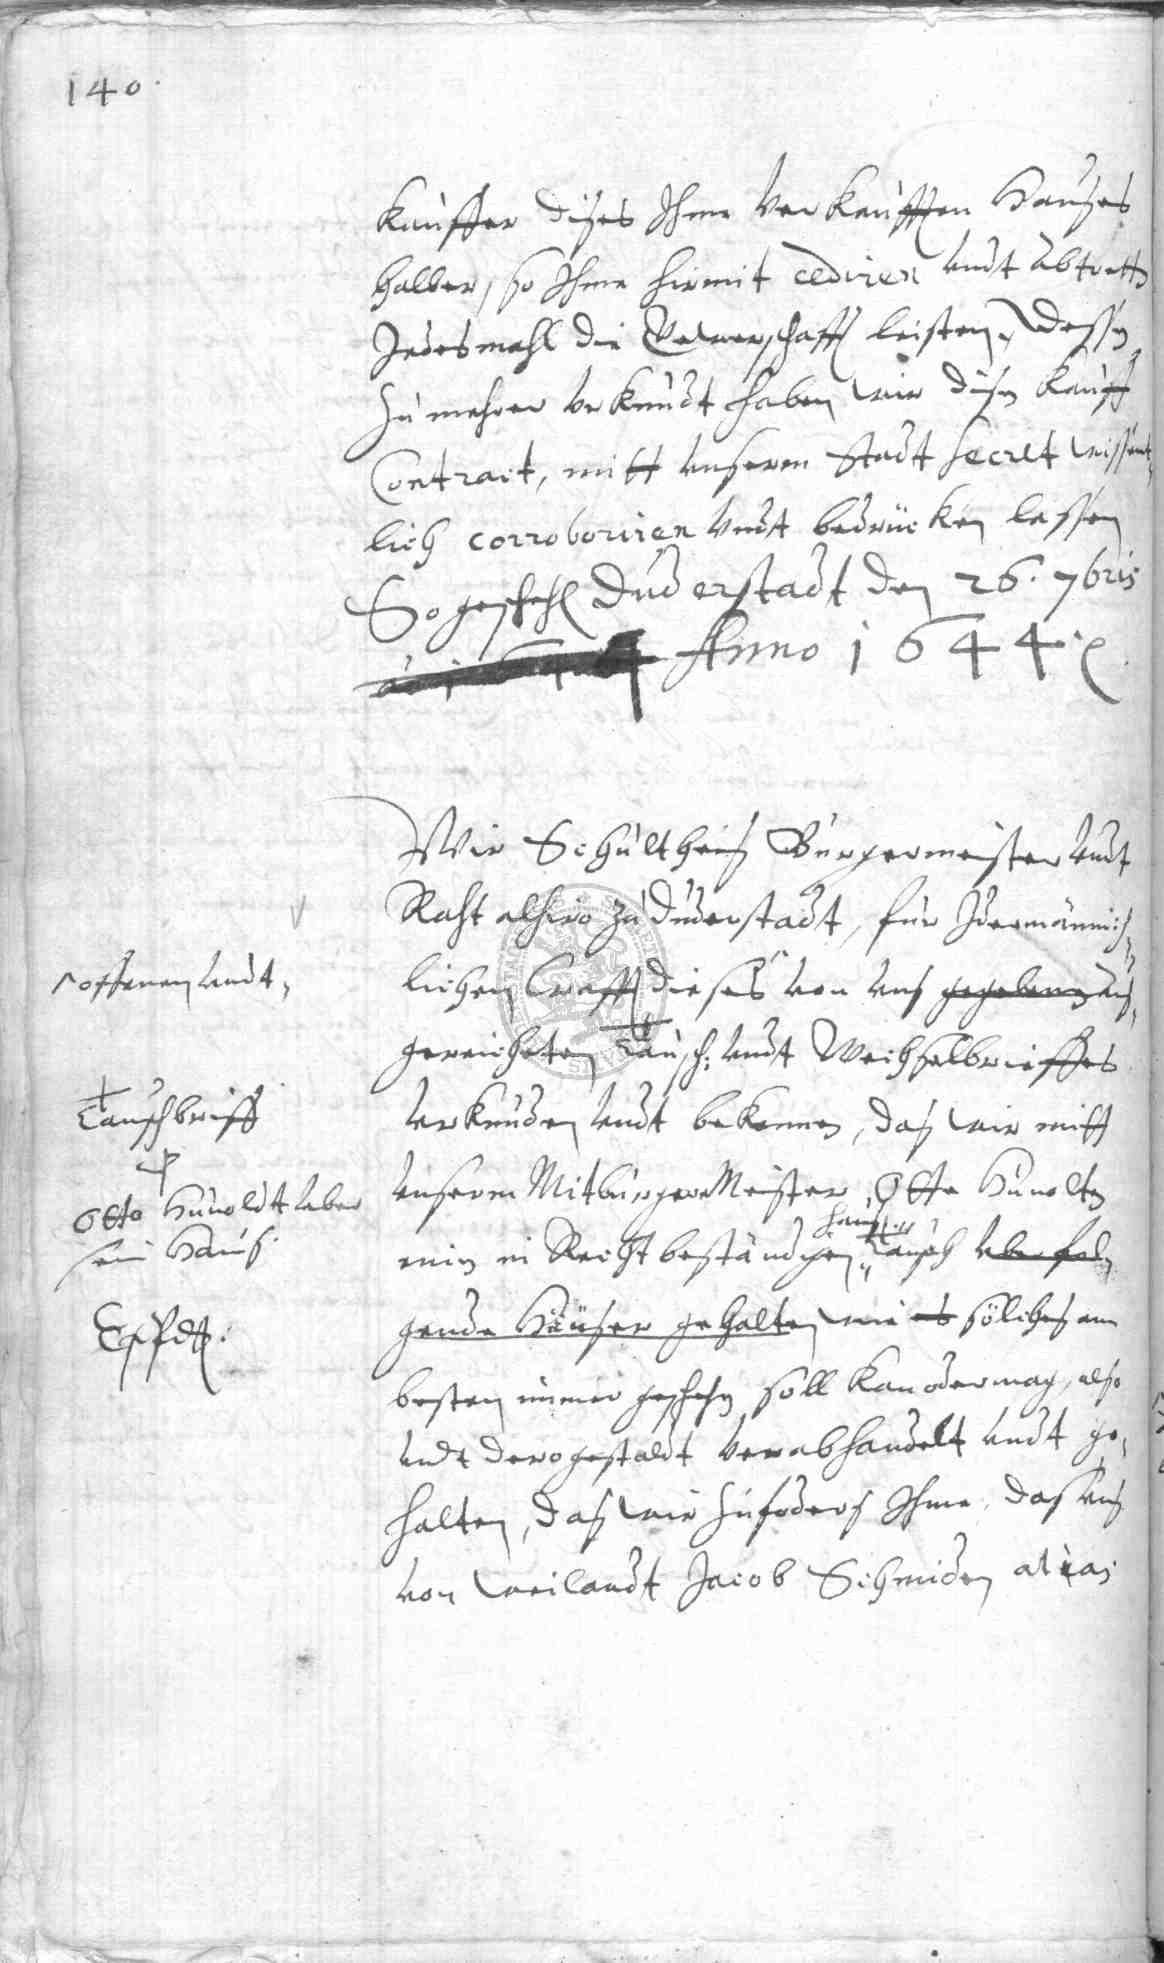 140.
Kauffer dises Ihme Verkaufften Hauses
halber, so Ihme hirmit cediren undt abtretten
Jedesmahl die Gewerschafft leisten, dessen
zu mehrer Urkundt haben wir disen Kauff
Contract, mitt unserem Stadt Secret wissent-
lich corroboriren undt bedrücken lassen
So geschehen Duderstadt den 26. 7bris
Anno 1644.
Wir Schultheis Bürgermeister undt
Raht alhiro zu Duderstadt, für Jdermännich-
lichen, Crafft dieses von uns gegebenen aus-
gereicheten Tausch: undt Wechselbrieffes
Urkunden undt bekennen, das wir mitt
unserm MitbürgerMeister, Otto Hunolten
einen in Recht beständigen Haus: Tausch uber fol-
gende Häuser gehalten wie es sölches am
besten immer geschehen soll kan oder mag, also
undt derogestaldt verabhandelt undt ge-
halten, das wir zufoders Ihme, das uns
von weilandt Jacob Schmiden
offenen undt,
Tauschbrieff
Otto Hunoldt uber
sein Haus.